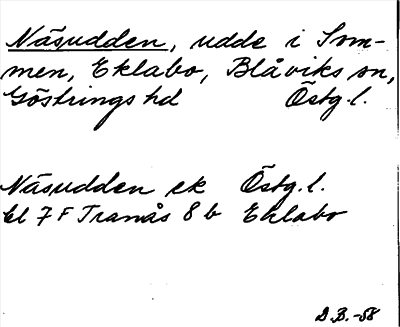 Näsudden, udde i Som-
men, Eklabo, Blåviks sn,
Göstrings hd Östg.l.
Näsudden ek Östg.l.
bl 7 F Tranås 8 b Eklabo
D.B.-58